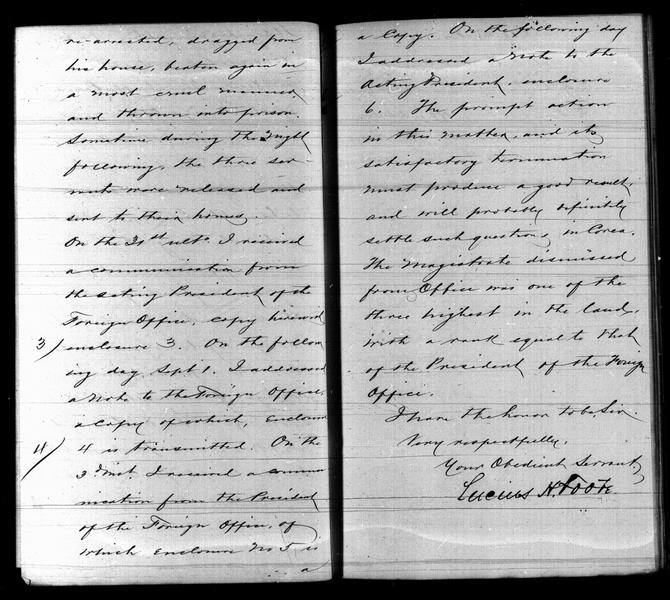 re-arrested, dragged from
his house, beaten again in
a most cruel manner
and thrown into prison.
Sometime during the night
following, the three ser-
vants were released and
sent to their homes.
On the 31st ulto. I received
a communication from
the acting President of the
Foreign Office, copy herewith
3/ enclosure 3. On the follow-
ing day, Sept 1. I addressed
a note to the Foreign Office,
a copy of which, enclosure
4/ 4 is transmitted. On the
3d inst. I received a commu-
nication from the President
of the Foreign Office, of
which enclosure No 5 is
a
a copy. On the following day
I addressed a note to the
Acting President, enclosure
6. The prompt action
in this matter, and its
satisfactory termination
must produce a good result,
and will probably definitely
settle such questions in Corea.
The Magistrate dismissed
from Office was one of the
three highest in the land,
with a rank equal to that
of the President of the Foreign
Office.
I have the honor to be, Sir,
Very respectfully,
Your Obedient Servant,
Lucius H. Foote